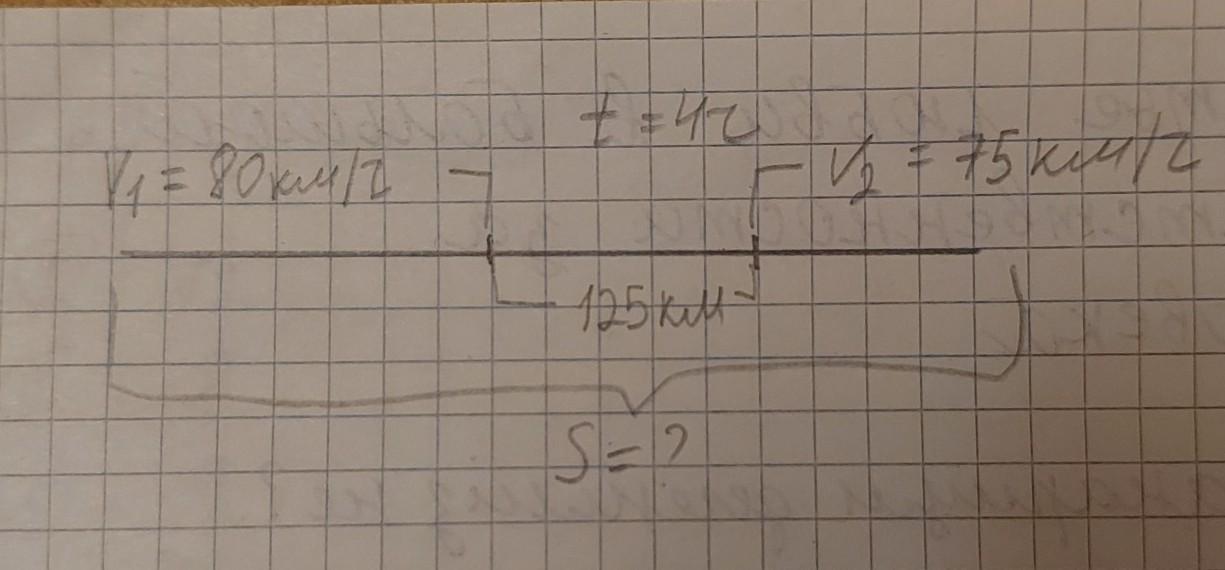 t = 4ч
V₁ = 80 км/ч V₂ = 75 км/ч
125 км
S = ?